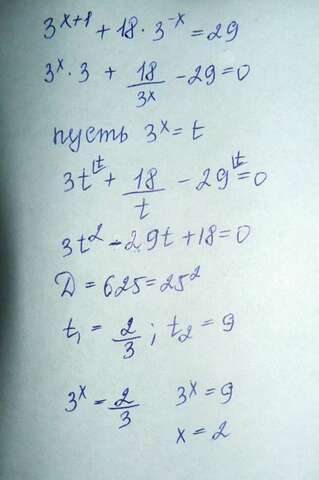 3^{x+1} + 18 · 3^{-x} = 29
3^x · 3 + \frac{18}{3^x} - 29 = 0
пусть 3^x = t
3t^{(t} + \frac{18}{t} - 29^{(t} = 0
3t^2 - 29t + 18 = 0
D = 625 = 25^2
t_1 = \frac{2}{3} ; t_2 = 9
3^x = \frac{2}{3} 3^x = 9
x = 2